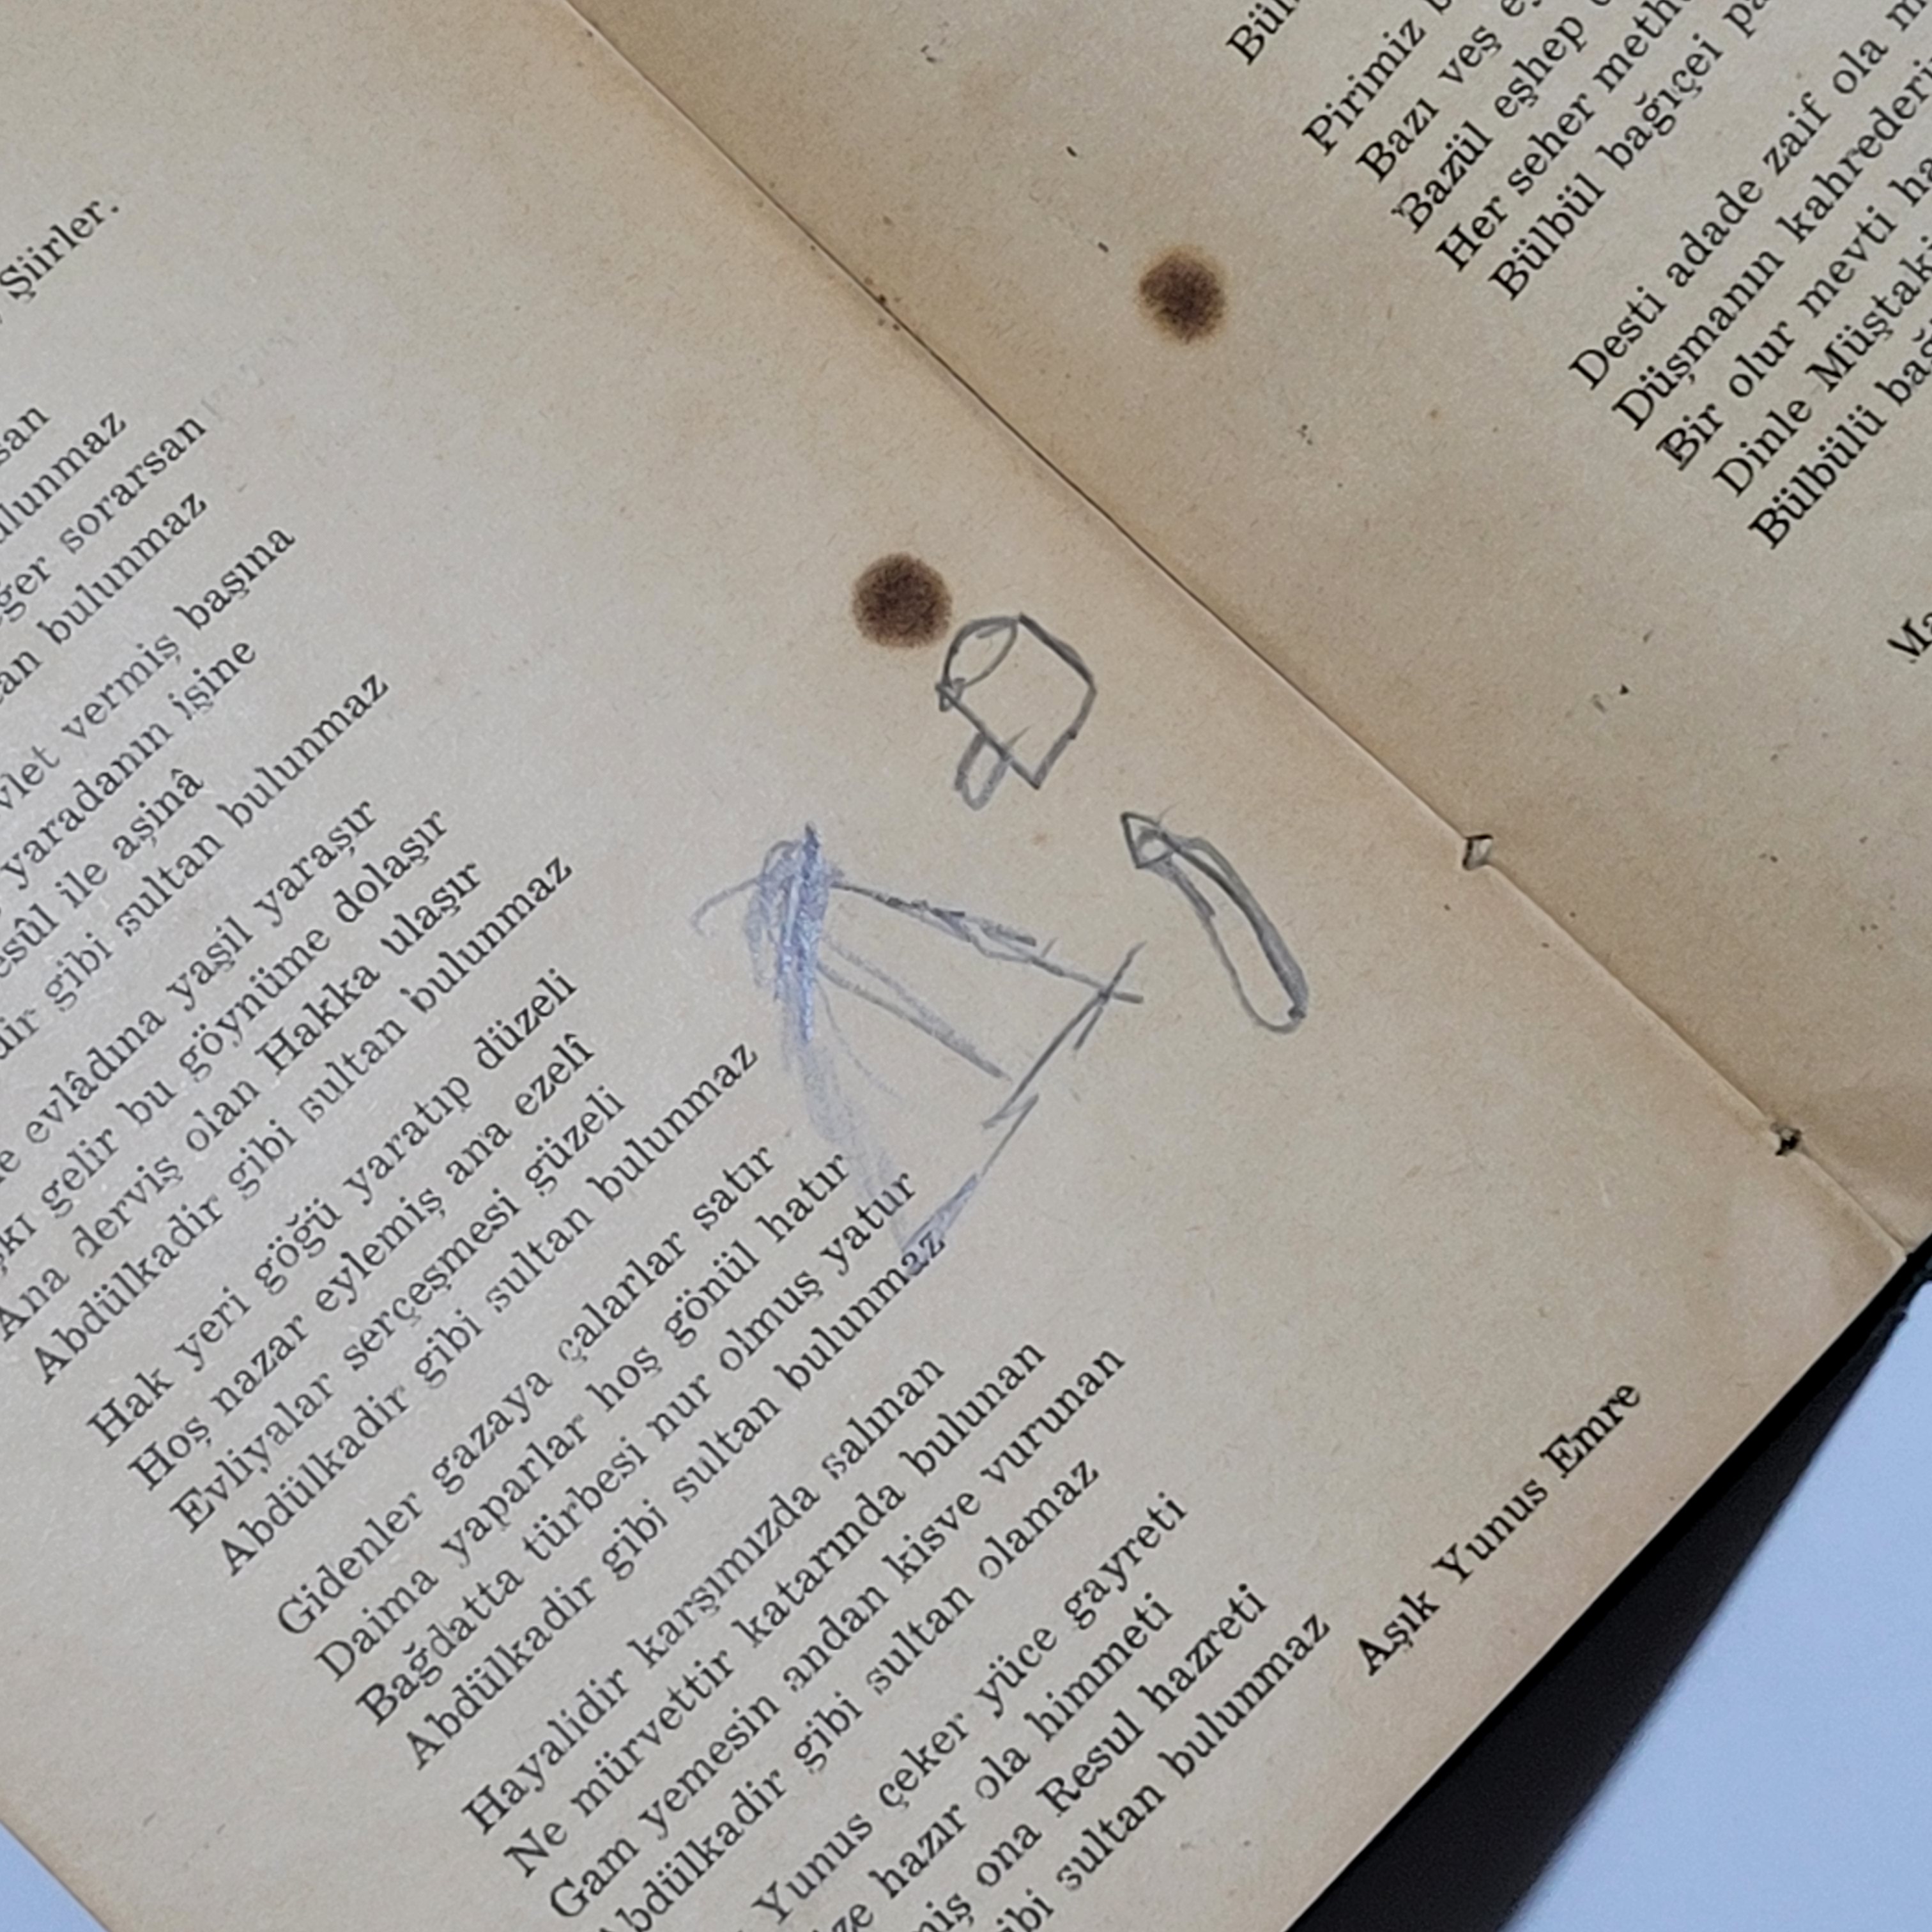 Şiirler.
bulunmaz
sorarsan
bulunmaz
vermiş başına
yaradanın işine
ile aşinâ
gibi sultan bulunmaz
evlâdına yaşil yaraşır
gelir bu göynüme dolaşır
Ana derviş olan Hakka ulaşır
Abdülkadir gibi sultan bulunmaz
Hak yeri göğü yaratıp düzeli
Hoş nazar eylemiş ana ezelî
Evliyalar serçeşmesi güzeli
Abdülkadir gibi sultan bulunmaz
Gidenler gazaya çalarlar satır
Daima yaparlar hoş gönül hatır
Bağdatta türbesi nur olmuş yatur
Abdülkadir gibi sultan bulunmaz
Hayalidir karşımızda salınan
Ne mürvettir katarında bulunan
Gam yemesin andan kisve vurunan
Abdülkadir gibi sultan olamaz
Yunus çeker yüce gayreti
hazır ola himmeti
ona Resul hazreti
gibi sultan bulunmaz
Aşık Yunus Emre
Pirimiz
Bazı veş
Bazül eşhep
Her seher
Bülbül bağıçei
Desti adade zaif ola
Düşmanın
Bir olur mevti
Dinle
Bülbülü